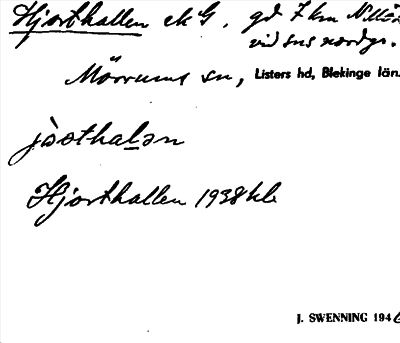 Hjorthallen ek G. gd 7 km N Mör
vid sns nordgr.
Mörrums sn, Listers hd, Blekinge län.
jòsthalən
Hjorthallen 1938 kle
J. SWENNING 1946